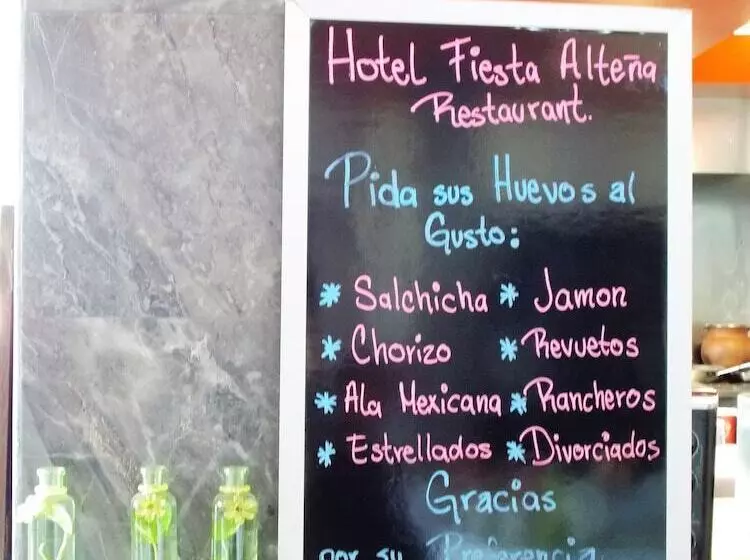 Hotel Fiesta Alteña
Restaurant.
Pida sus Huevos al
Gusto:
* Salchicha * Jamon
* Chorizo * Revuetos
* Ala Mexicana * Rancheros
* Estrellados * Divorciados
Gracias
por su Preferencia